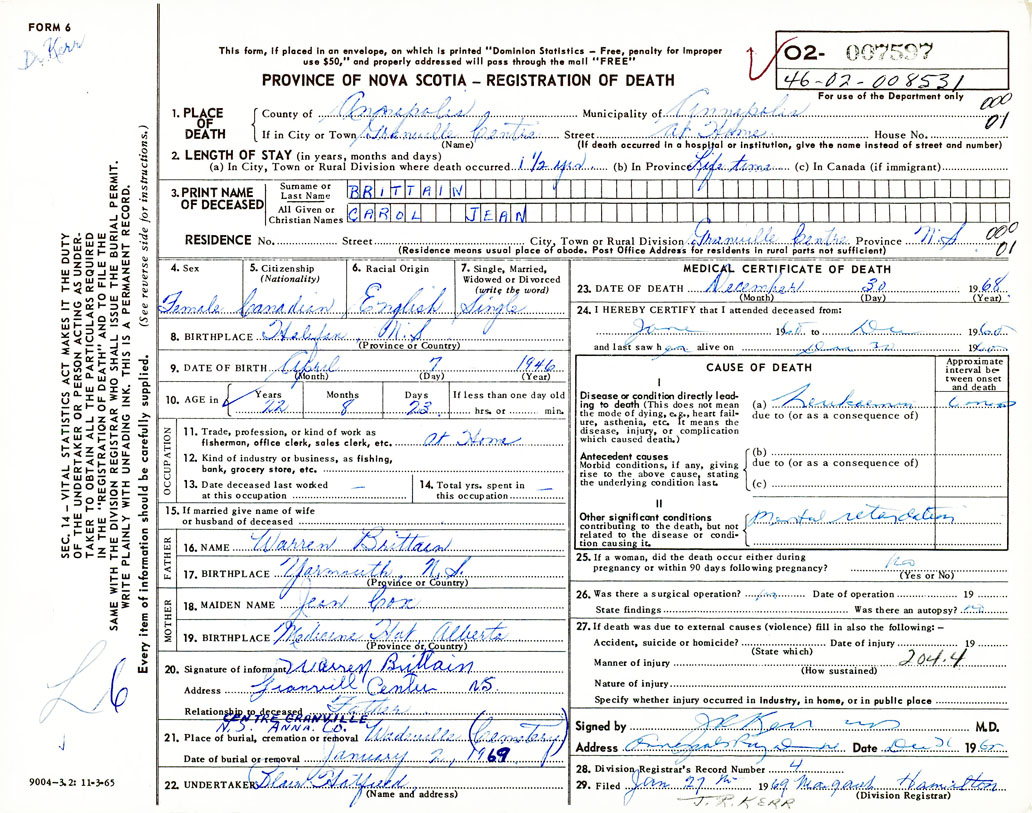 FORM 6
Dr. Kerr
This form, if placed in an envelope, on which is printed "Dominion Statistics – Free, penalty for improper
use $50," and properly addressed will pass through the mail "FREE"
PROVINCE OF NOVA SCOTIA – REGISTRATION OF DEATH
O2- 007597
46-02-008531
For use of the Department only
000
01
1. PLACE OF DEATH
County of Annapolis Municipality of Annapolis
If in City or Town Granville Centre Street At Home House No.
(Name) (If death occurred in a hospital or institution, give the name instead of street and number)
2. LENGTH OF STAY (in years, months and days)
(a) In City, Town or Rural Division where death occurred 1 1/2 yrs (b) In Province Life time (c) In Canada (if immigrant)
3. PRINT NAME OF DECEASED
Surname or Last Name BRITTAIN
All Given or Christian Names CAROL JEAN
RESIDENCE No. Street City, Town or Rural Division Granville Centre Province N.S
(Residence means usual place of abode. Post Office Address for residents in rural parts not sufficient)
000
01
4. Sex Female
5. Citizenship (Nationality) Canadian
6. Racial Origin English
7. Single, Married, Widowed or Divorced (write the word) Single
8. BIRTHPLACE Halifax N.S
(Province or Country)
9. DATE OF BIRTH April 7 1946
(Month) (Day) (Year)
10. AGE in Years 22 Months 8 Days 23 If less than one day old hrs. or min.
OCCUPATION
11. Trade, profession, or kind of work as
fisherman, office clerk, sales clerk, etc. at Home
12. Kind of industry or business, as fishing,
bank, grocery store, etc.
13. Date deceased last worked
at this occupation —
14. Total yrs. spent in
this occupation —
15. If married give name of wife
or husband of deceased
FATHER
16. NAME Warren Brittain
17. BIRTHPLACE Yarmouth N.S.
(Province or Country)
MOTHER
18. MAIDEN NAME Jean Cox
19. BIRTHPLACE Medicine Hat Alberta
(Province or Country)
20. Signature of informant Warren Brittain
Address Granvill Center NS.
Relationship to deceased Father
CENTRE GRANVILLE
N.S. ANNA. CO.
21. Place of burial, cremation or removal (Cemetary)
Date of burial or removal January 2, 1969
22. UNDERTAKER Blair
(Name and address)
MEDICAL CERTIFICATE OF DEATH
23. DATE OF DEATH December 30 1968
(Month) (Day) (Year)
24. I HEREBY CERTIFY that I attended deceased from:
June 1968 to Dec 1968
and last saw her alive on 1968
CAUSE OF DEATH
Approximate interval between onset and death
I
Disease or condition directly leading to death (This does not mean
the mode of dying, e.g., heart failure, asthenia, etc. It means the
disease, injury, or complication which caused death.)
(a) Leukaemia
due to (or as a consequence of)
Antecedent causes
Morbid conditions, if any, giving
rise to the above cause, stating
the underlying condition last.
(b)
due to (or as a consequence of)
(c)
II
Other significant conditions
contributing to the death, but not
related to the disease or condition causing it.
Mental retardation
25. If a woman, did the death occur either during
pregnancy or within 90 days following pregnancy? no
(Yes or No)
26. Was there a surgical operation? no Date of operation 19
State findings Was there an autopsy? no
27. If death was due to external causes (violence) fill in also the following: –
Accident, suicide or homicide? Date of injury 19
(State which)
Manner of injury 204.4
(How sustained)
Nature of injury
Specify whether injury occurred in industry, in home, or in public place
Signed by J R Kerr M.D.
Address Annapolis Royal Date Dec 31 1968
28. Division Registrar's Record Number 4
29. Filed Jan 27th 1969 Margaret Hamilton
(Division Registrar)
J. R. KERR
SEC. 14 – VITAL STATISTICS ACT MAKES IT THE DUTY
OF THE UNDERTAKER OR PERSON ACTING AS UNDER-
TAKER TO OBTAIN ALL THE PARTICULARS REQUIRED
IN THE "REGISTRATION OF DEATH" AND TO FILE THE
SAME WITH THE DIVISION REGISTRAR WHO SHALL ISSUE THE BURIAL PERMIT.
WRITE PLAINLY WITH UNFADING INK. THIS IS A PERMANENT RECORD.
Every item of information should be carefully supplied. (See reverse side for instructions.)
6
9004-3.2: 11-3-65